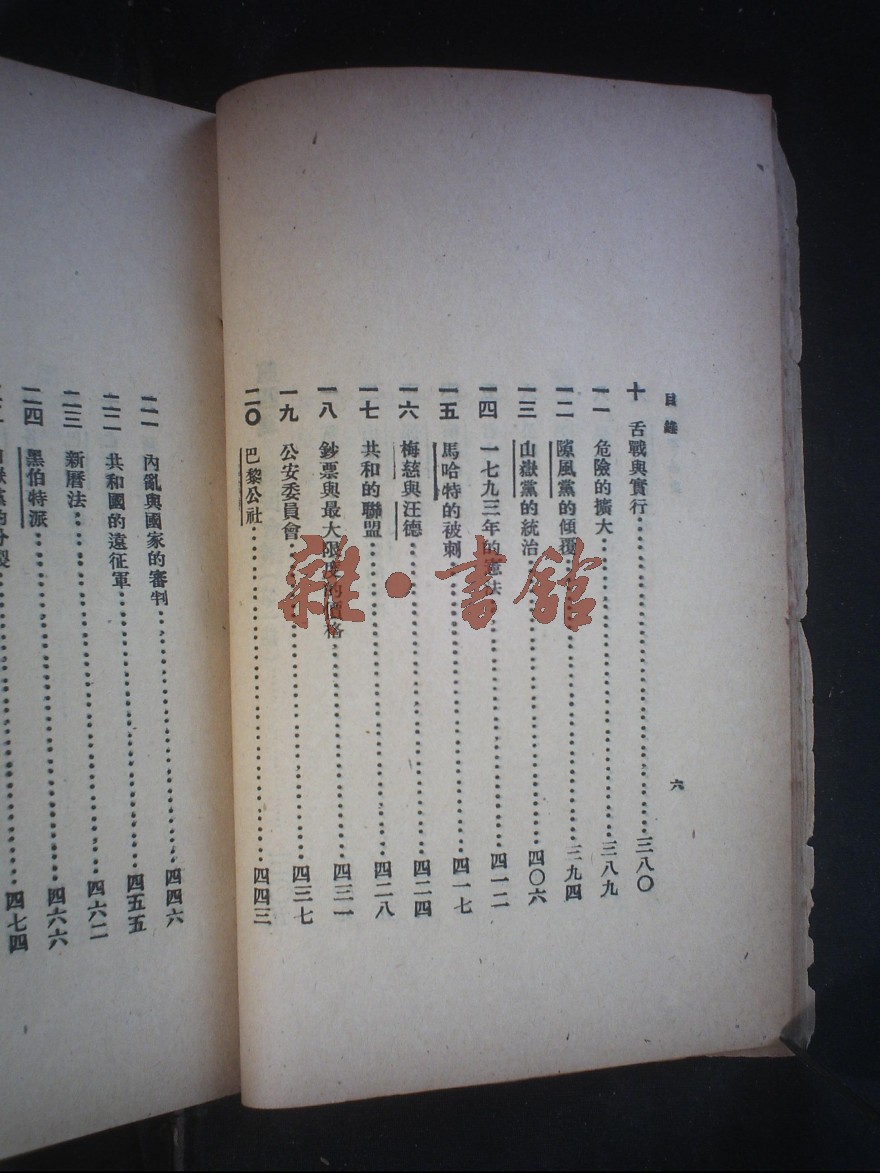 目錄
六
十 舌戰與實行 三八〇
一一 危險的擴大 三八九
一二 隙風黨的傾覆 三九四
一三 山嶽黨的統治 四〇六
一四 一七九三年的憲法 四一二
一五 馬哈特的被刺 四一七
一六 梅慈與汪德 四二四
一七 共和的聯盟 四二八
一八 鈔票與最大限度的價格 四三一
一九 公安委員會 四三七
二〇 巴黎公社 四四三
二一 內亂與國家的審判 四四六
二二 共和國的遠征軍 四五五
二三 新曆法 四六二
二四 黑伯特派 四六六
黨的分裂 四七四
雜·書館